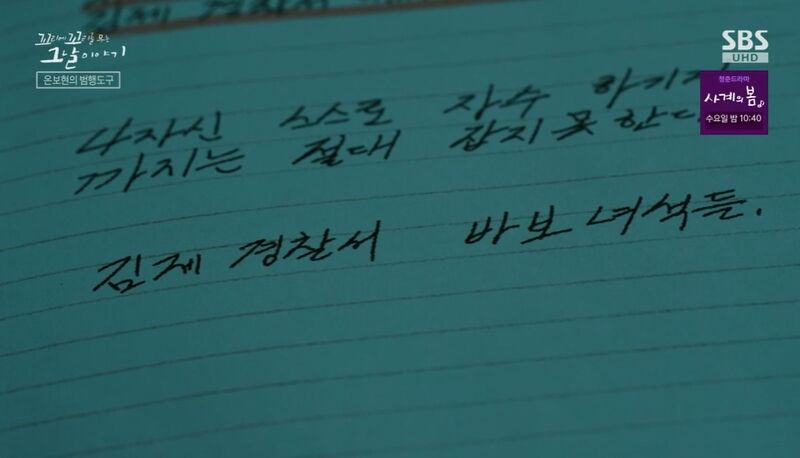 김제 경찰서
꼬리에 꼬리를 무는
그날 이야기
온보현의 범행도구
SBS
UHD
청춘드라마
사계의 봄
수요일 밤 10:40
나자신 스스로 자수 하기
까지는 절대 잡지 못한다
김제 경찰서 바보 녀석들.